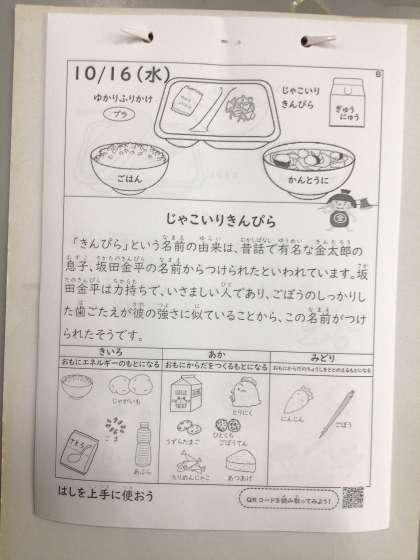 10/16(水)
B
ゆかりふりかけ
プラ
じゃこいり
きんぴら
ぎゅう
にゅう
ごはん
かんとうに
じゃこいりきんぴら
「きんぴら」という名前の由来は、昔話で有名な金太郎の
息子、坂田金平の名前からつけられたといわれています。坂
田金平は力持ちで、いさましい人であり、ごぼうのしっかりし
た歯ごたえが彼の強さに似ていることから、この名前がつけ
られたそうです。
きいろ
あか
みどり
おもにエネルギーのもとになる
おもにからだをつくるもとになる
おもにからだのちょうしをととのえるもとになる
じゃがいも
とりにく
にんじん
ごぼう
ごま
うずらたまご
ひとくち
ごぼうてん
あぶら
ちりめんじゃこ
あつあげ
はしを上手に使おう
QRコードを読み取ってみよう!